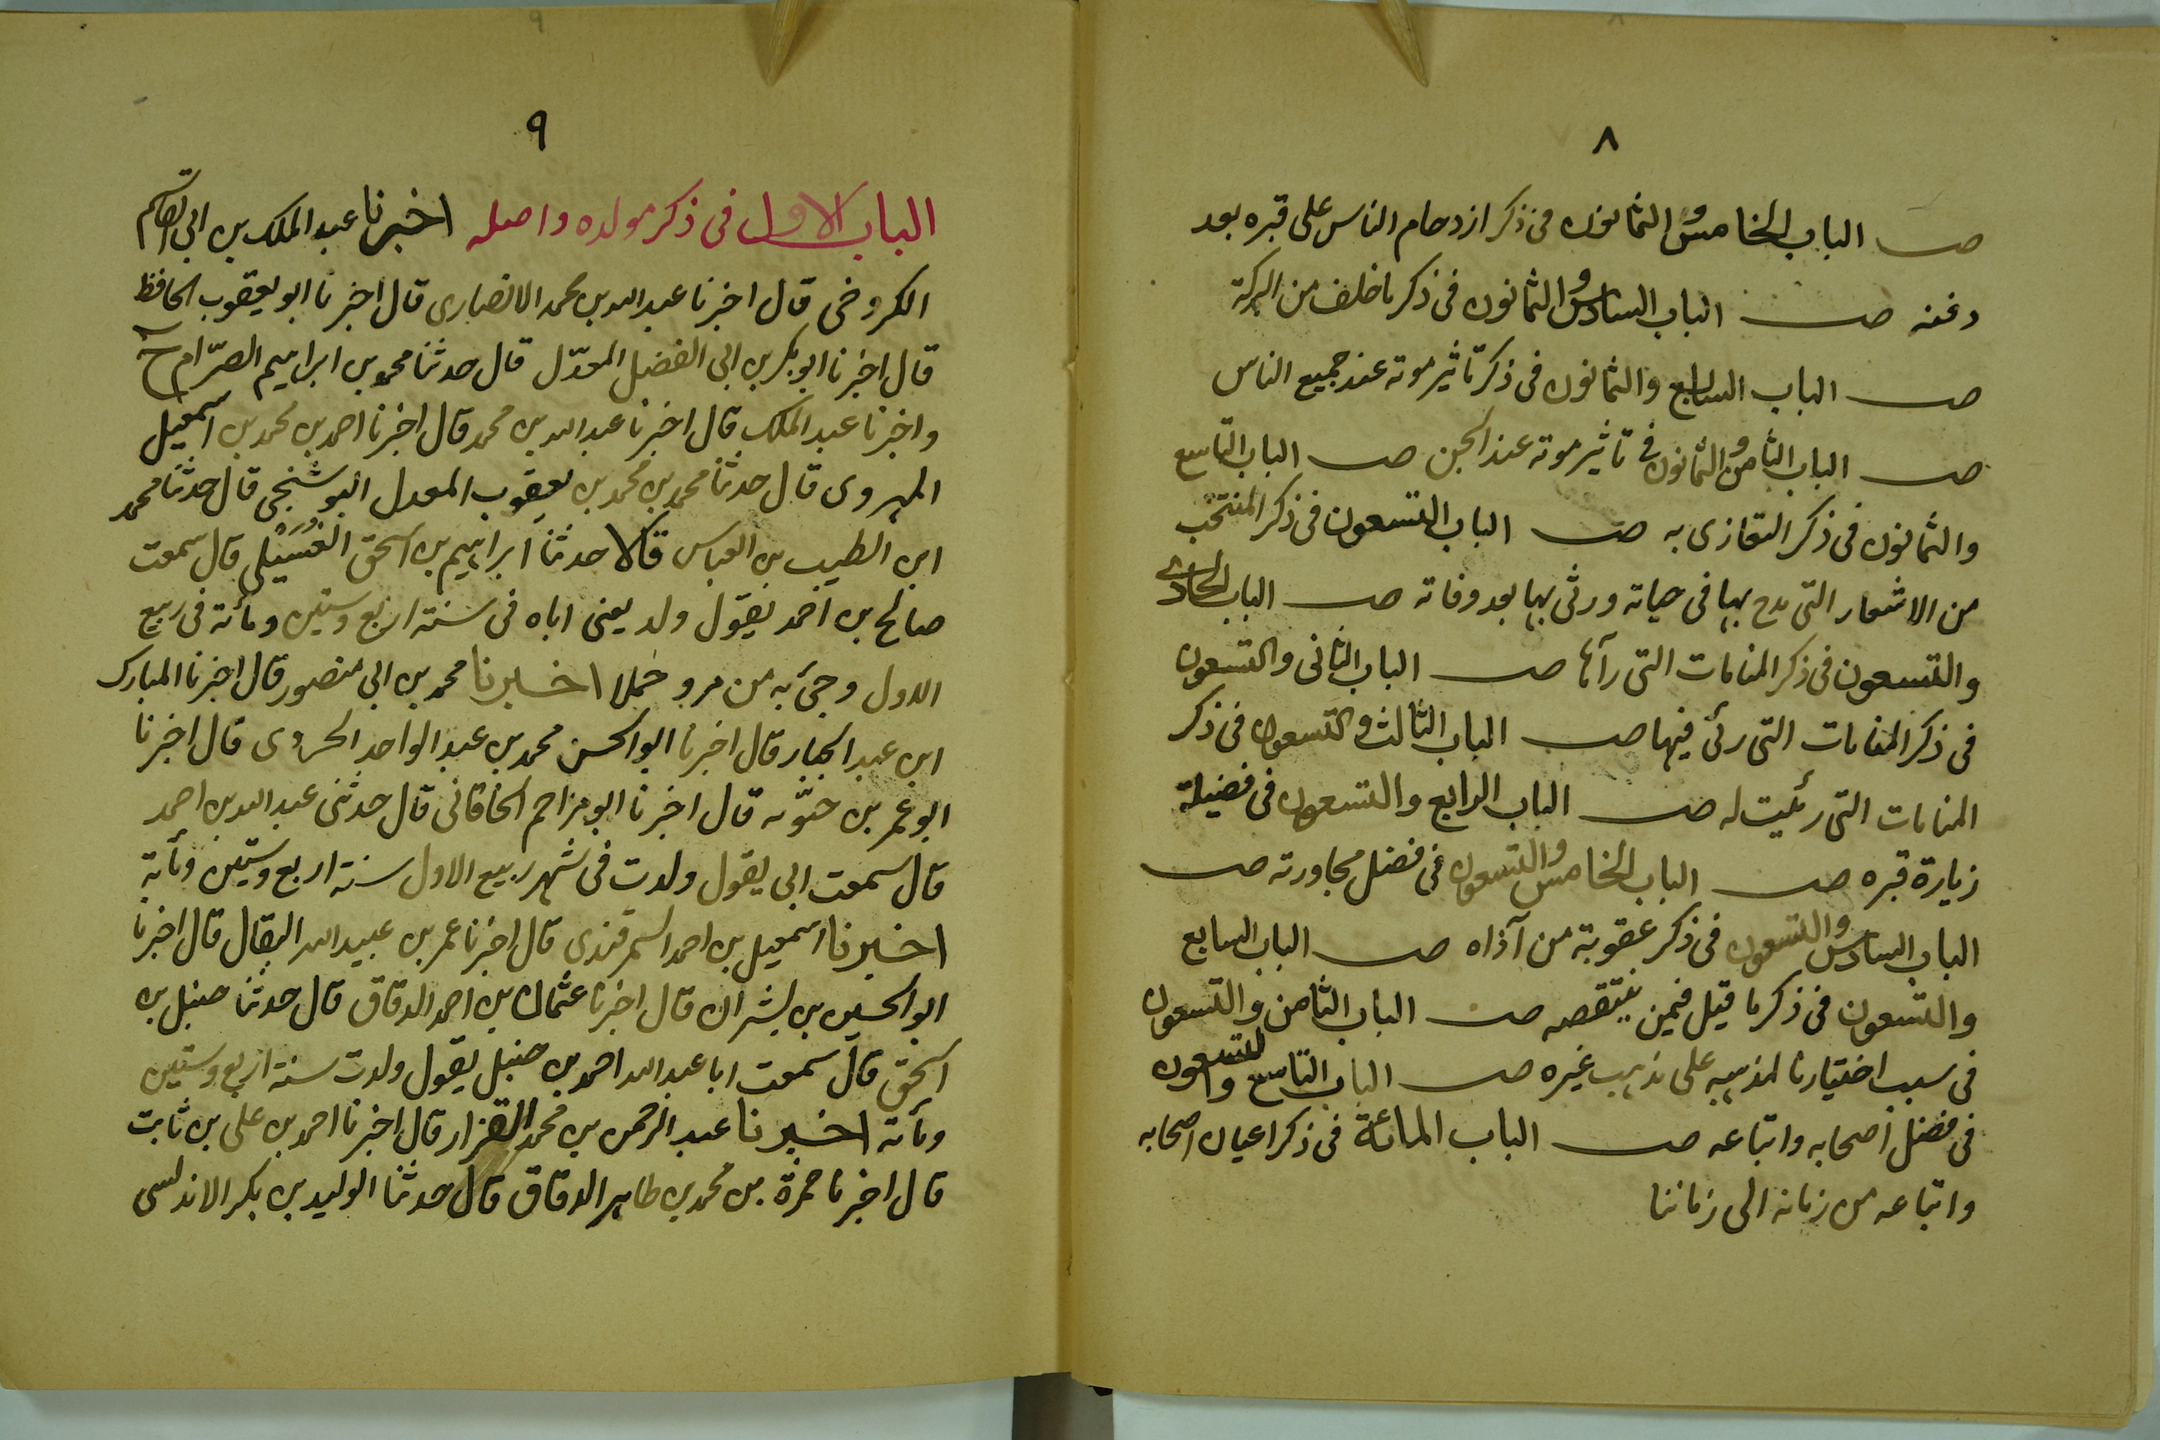 ٨
صـ الباب الخامس والثمانون فى ذكر ازدحام الناس على قبره بعد
دفنه صـ الباب السادس والثمانون فى ذكر ما خلف من التركة
صـ الباب السابع والثمانون فى ذكر تاثير موته عند جميع الناس
صـ الباب الثامن والثمانون فى تاثير موته عند الجن صـ الباب التاسع
والثمانون فى ذكر التعازى به صـ الباب التسعون فى ذكر المنتخب
من الاشعار التى مدح بها فى حياته ورثى بها بعد وفاته صـ الباب الحادى
والتسعون فى ذكر المنامات التى رآها صـ الباب الثانى والتسعون
فى ذكر المنامات التى رئى فيها صـ الباب الثالث والتسعون فى ذكر
المنامات التى رئيت له صـ الباب الرابع والتسعون فى فضيلة
زيارة قبره صـ الباب الخامس والتسعون فى فضل مجاورته صـ
الباب السادس والتسعون فى ذكر عقوبة من آذاه صـ الباب السابع
والتسعون فى ذكر ما قيل فيمن ينتقصه صـ الباب الثامن والتسعون
فى سبب اختيارنا لمذهبه على مذهب غيره صـ الباب التاسع والتسعون
فى فضل أصحابه واتباعه صـ الباب المائة فى ذكر اعيان اصحابه
واتباعه من زمانه الى زماننا
٩
الباب الاول فى ذكر مولده واصله اخبرنا عبد الملك بن ابى القاسم
الكروخى قال اخبرنا عبد الله بن محمد الانصارى قال اخبرنا ابو يعقوب الحافظ
قال اخبرنا ابو بكر بن ابى الفضل المعدّل قال حدثنا محمد بن ابراهيم الصرّام ح
واخبرنا عبد الملك قال اخبرنا عبد الله بن محمد قال اخبرنا احمد بن محمد بن اسمعيل
المهروى قال حدثنا محمد بن محمد بن يعقوب المعدل البوشنجى قال حدثنا محمد
ابن الطيب بن العباس قالا حدثنا ابراهيم بن اسحق الغُسَيْلى قال سمعت
صالح بن أحمد يقول ولد يعنى اباه فى سنة اربع وستين ومائة فى ربيع
الاول وجئ به من مرو حملا اخبرنا محمد بن ابى منصور قال اخبرنا المبارك
ابن عبد الجبار قال اخبرنا ابو الحسن محمد بن عبد الواحد الحروى قال اخبرنا
ابو عمر بن حيّويه قال اخبرنا ابو مزاحم الخاقانى قال حدثنى عبد الله بن احمد
قال سمعت ابى يقول ولدت فى شهر ربيع الاول سنة اربع وستين ومأية
اخبرنا اسمعيل بن احمد السمرقندى قال اخبرنا عمر بن عبيد الله البقال قال اخبرنا
ابو الحسين بن بشران قال اخبرنا عثمان بن احمد الدقاق قال حدثنا حنبل بن
اسحق قال سمعت ابا عبد الله احمد بن حنبل يقول ولدت سنة اربع وستين
ومأته اخبرنا عبد الرحمن بن محمد القزار قال اخبرنا احمد بن على بن ثابت
قال اخبرنا حمزة بن محمد بن طاهر الدقاق قال حدثنا الوليد بن بكر الاندلسى